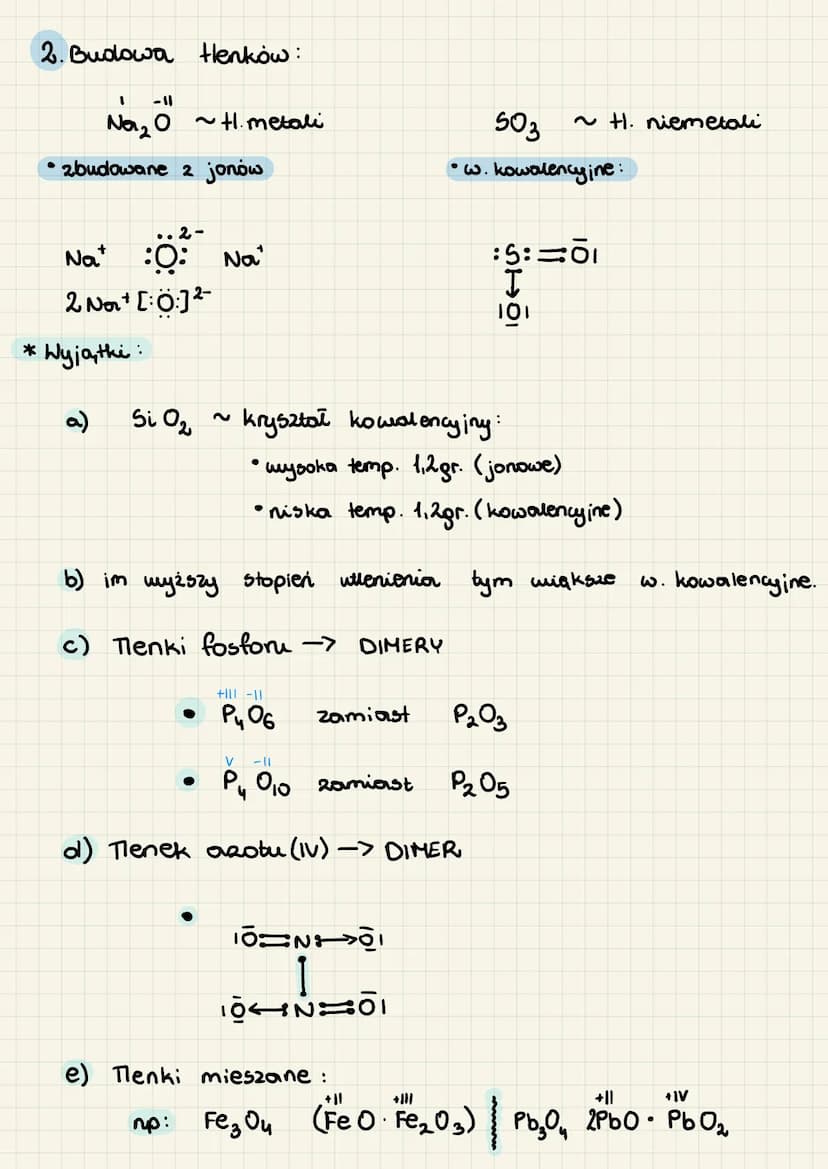 2. Budowa tlenków:
I -II
Na₂O ~ tl. metali
SO₃ ~ tl. niemetali
• zbudowane z jonów
• w. kowalencyjne:
Na⁺ :Ö:²⁻ Na⁺
:S:=O|
2Na⁺ [:Ö:]²⁻
|O|
* Wyjątki:
a) SiO₂ ~ kryształ kowalencyjny:
• wysoka temp. 1,2gr. (jonowe)
• niska temp. 1,2gr. (kowalencyjne)
b) im wyższy stopień utlenienia tym większe w. kowalencyjne.
c) Tlenki fosforu → DIMERY
+III -II
• P₄O₆ zamiast P₂O₃
V -II
• P₄O₁₀ zamiast P₂O₅
d) Tlenek azotu (IV) → DIMER
•
|O=N:→O|
|O←:N=O|
e) Tlenki mieszane:
+II +III +II +IV
np: Fe₃O₄ (FeO · Fe₂O₃) | Pb₃O₄ 2PbO · PbO₂